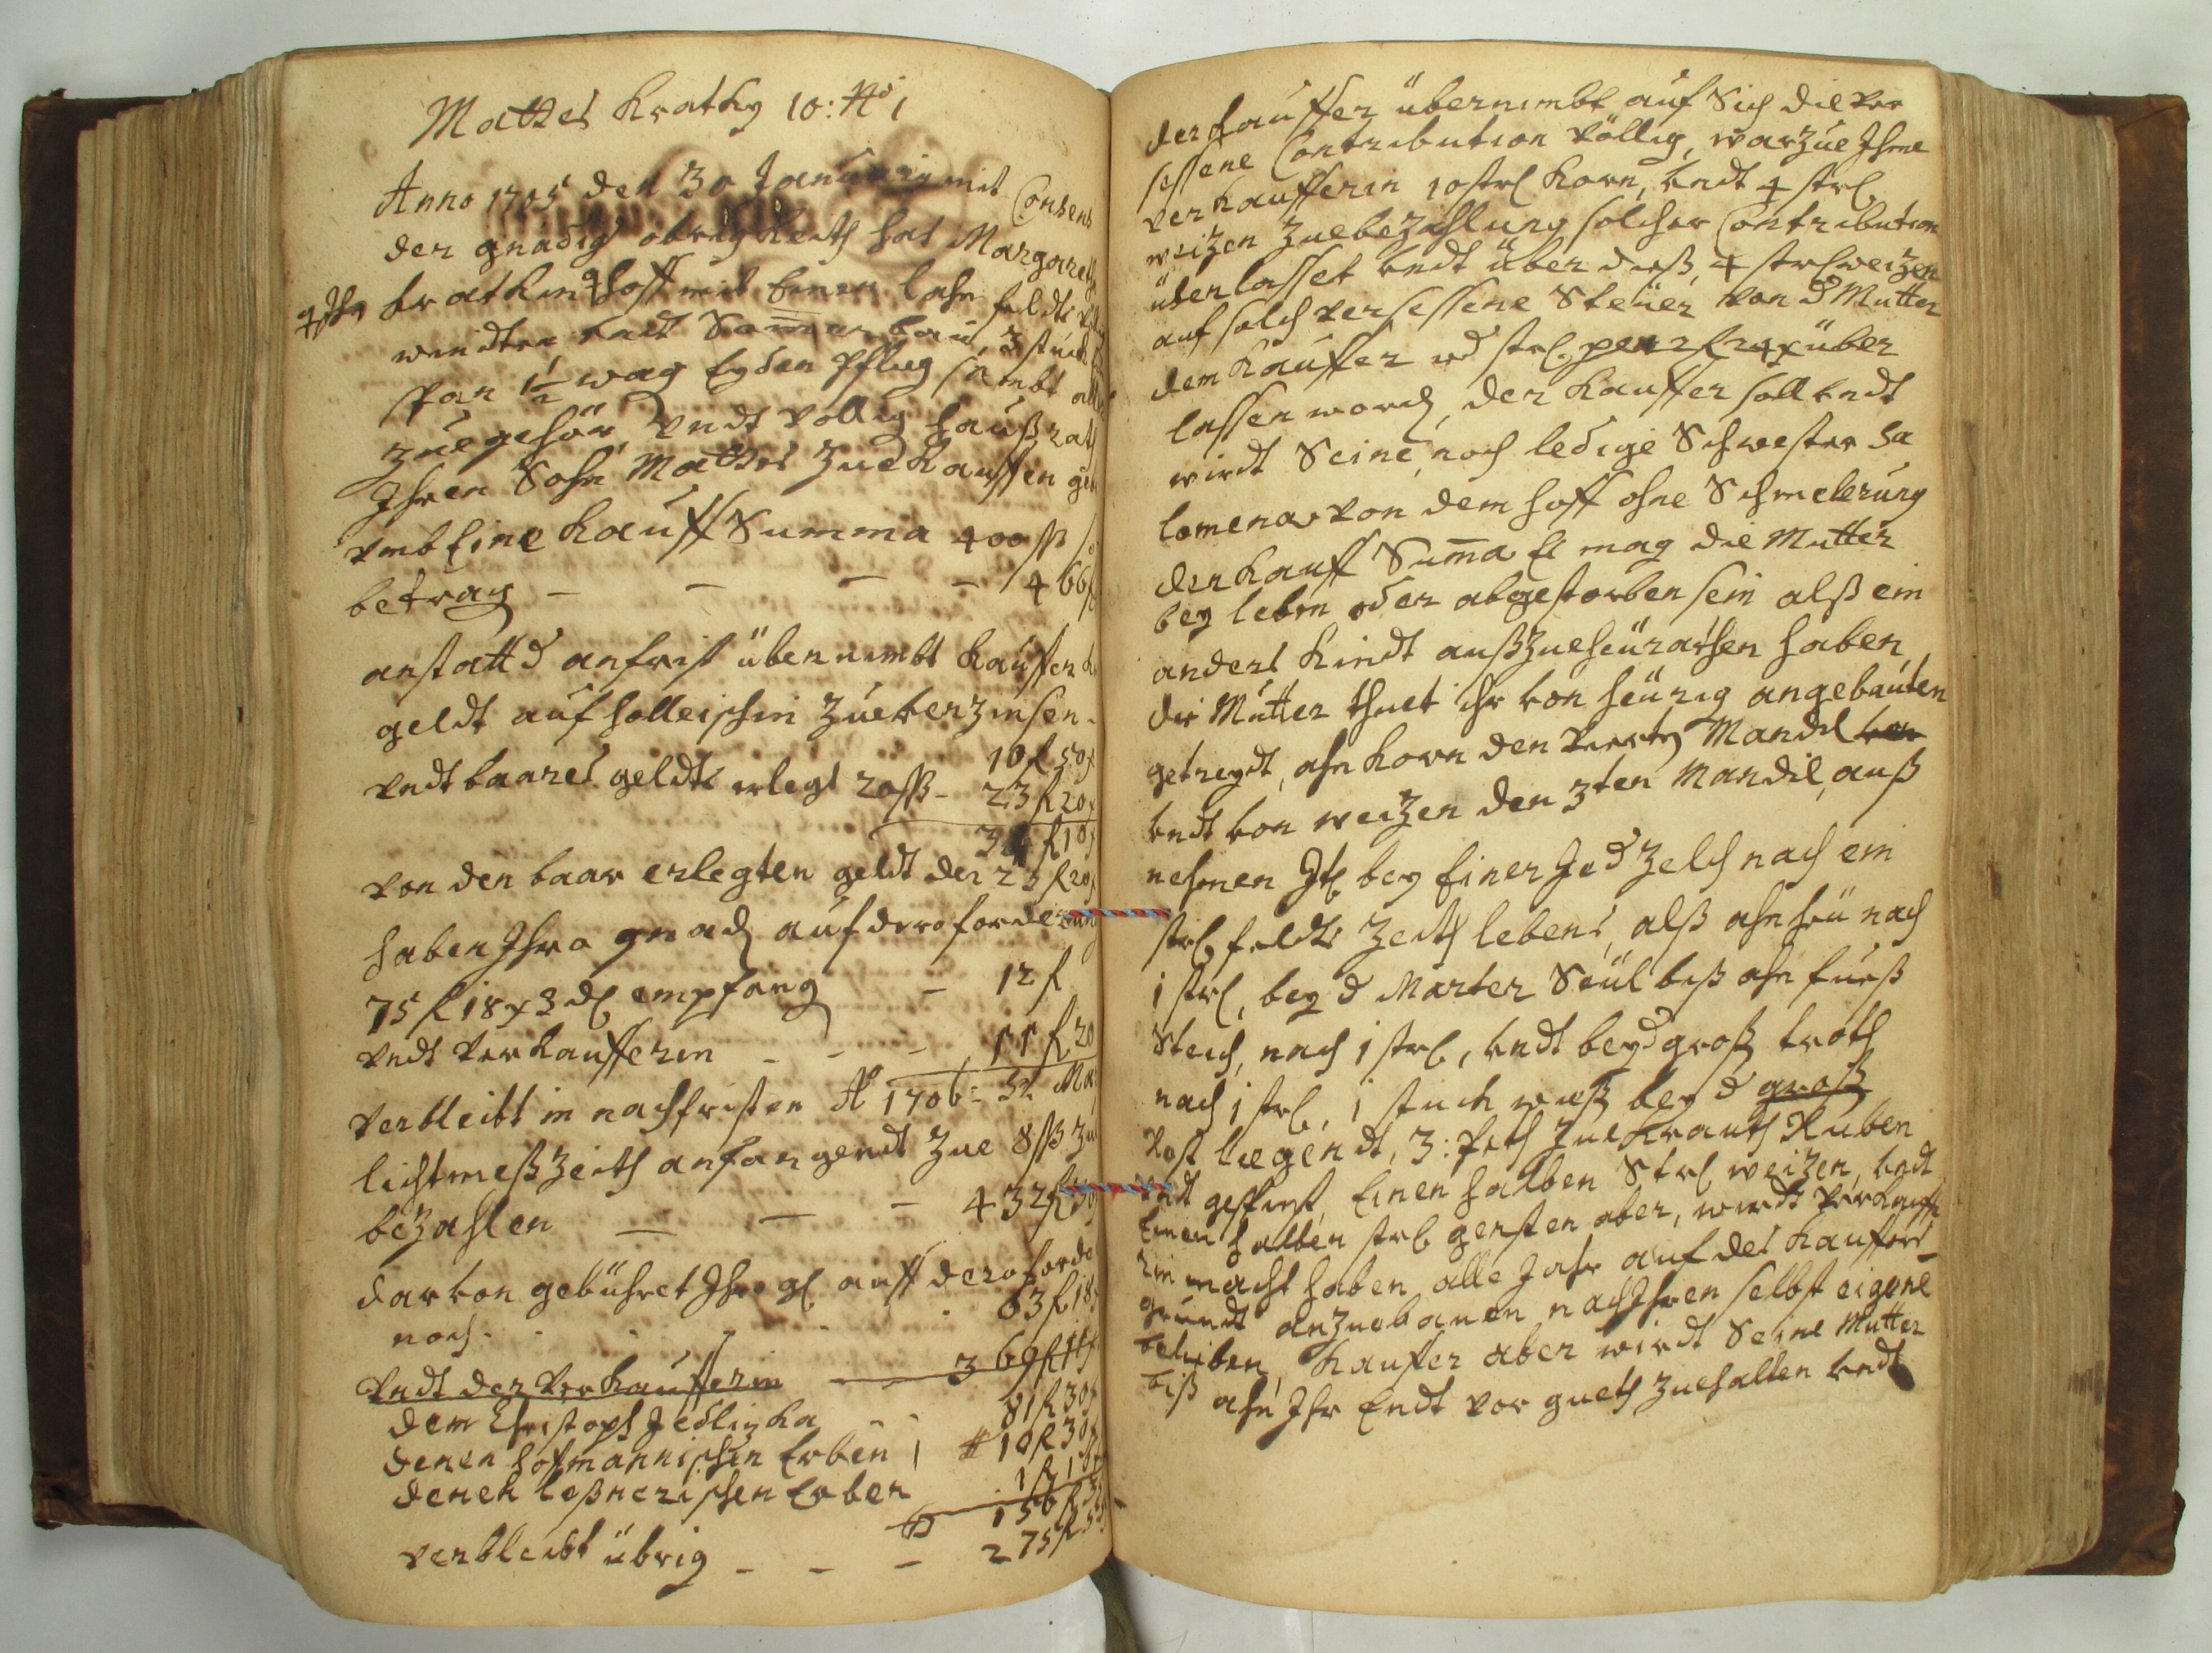 Mattes Kratky 10: No 1
Anno 1705 den 30 Januarij mit Consens
der gnädig obrigkeith hat Margareth
Kratkin hoff mit Einen lahn feldt
windter undt Sommer bau, 3 stuckh
1½ wag Eyden Pflug sambt all
zuegehör, undt völlig haußrath
Ihren Sohn Mattes zue Kauffen
umb Eine Kauff Summa 400 ß
betrag - - - - 466 f
anstatt d anfrist übernimbt Kauffer
geldt auf zue verzinsen
10 f 50 x
undt baares geldt erlegt 20 ß - 23 f 20 x
34 f 10 x
von den baar erlegten geldt der 23 f 20 x
haben Ihro gnad auf dero forderung
75 f 18 x 3 d empfang - 12 f
undt Verkaufferin - - - 11 f 20
Verbleibt in nachfristen Ao 1706
lichtmeßzeith anfangendt zue 8 ß zu
bezahlen - - - 432 f 30
darvon gebühret Ihro g auff dero forde
noch . . . . 63 f 18 x
undt der Verkaufferin - 369 f
dem Christoph Jedlizka 81 f 30 x
denen hofmannischen Erben 10 f 30 x
denen leßnerischen Erben
156 f
verbleibt übrig - - - 275 f
der Kauffer übernimbt auf Sich die ver
sessene Contribution völlig, warzue Ihme
verkaufferin 10 strl Korn, undt 4 strl
weizen zue bezahlung solcher Contribution
überlasset undt über dieß, 4 strl weizen
auf solch versessene Steüer von d Mutter
dem Kauffer strl per 2 f 24 x über
lassen word, der Kauffer soll undt
wirdt Seine noch ledige Schwester Sa
lomena von dem hoff ohne Schmelerung
der Kauff Summa Es mag die Mutter
bey leben oder abgestorben sein alß ein
anders Kindt außzueheürathen haben,
die Mutter thuet ihr von heürig angebauten
getreydt, ahn Korn den Mandl
undt von weizen den 3ten Mandil, auß
nehmen Itl bey Einer Jed Zelch nach ein
strl feldts Zeith lebens, alß ahn nach
1 strl, bey d Marter Seül biß ahn fueß
Steich, nach 1 strl, undt bey d groß
nach 1 strl, 1 stuck wiß bey d groß
liegendt, 3: zue Krauth Ruben
undt Einen halben Strl weizen, undt
Einen halben strl gersten aber, wirdt Verkauffe
rin macht haben alle Jahr auf des Kauffers
grundt anzuebauen nach Ihren selbst eigene
belieben, Kauffer aber wirdt Seine Mutter
biß ahn Ihr Endt vor gueth zuehalten undt